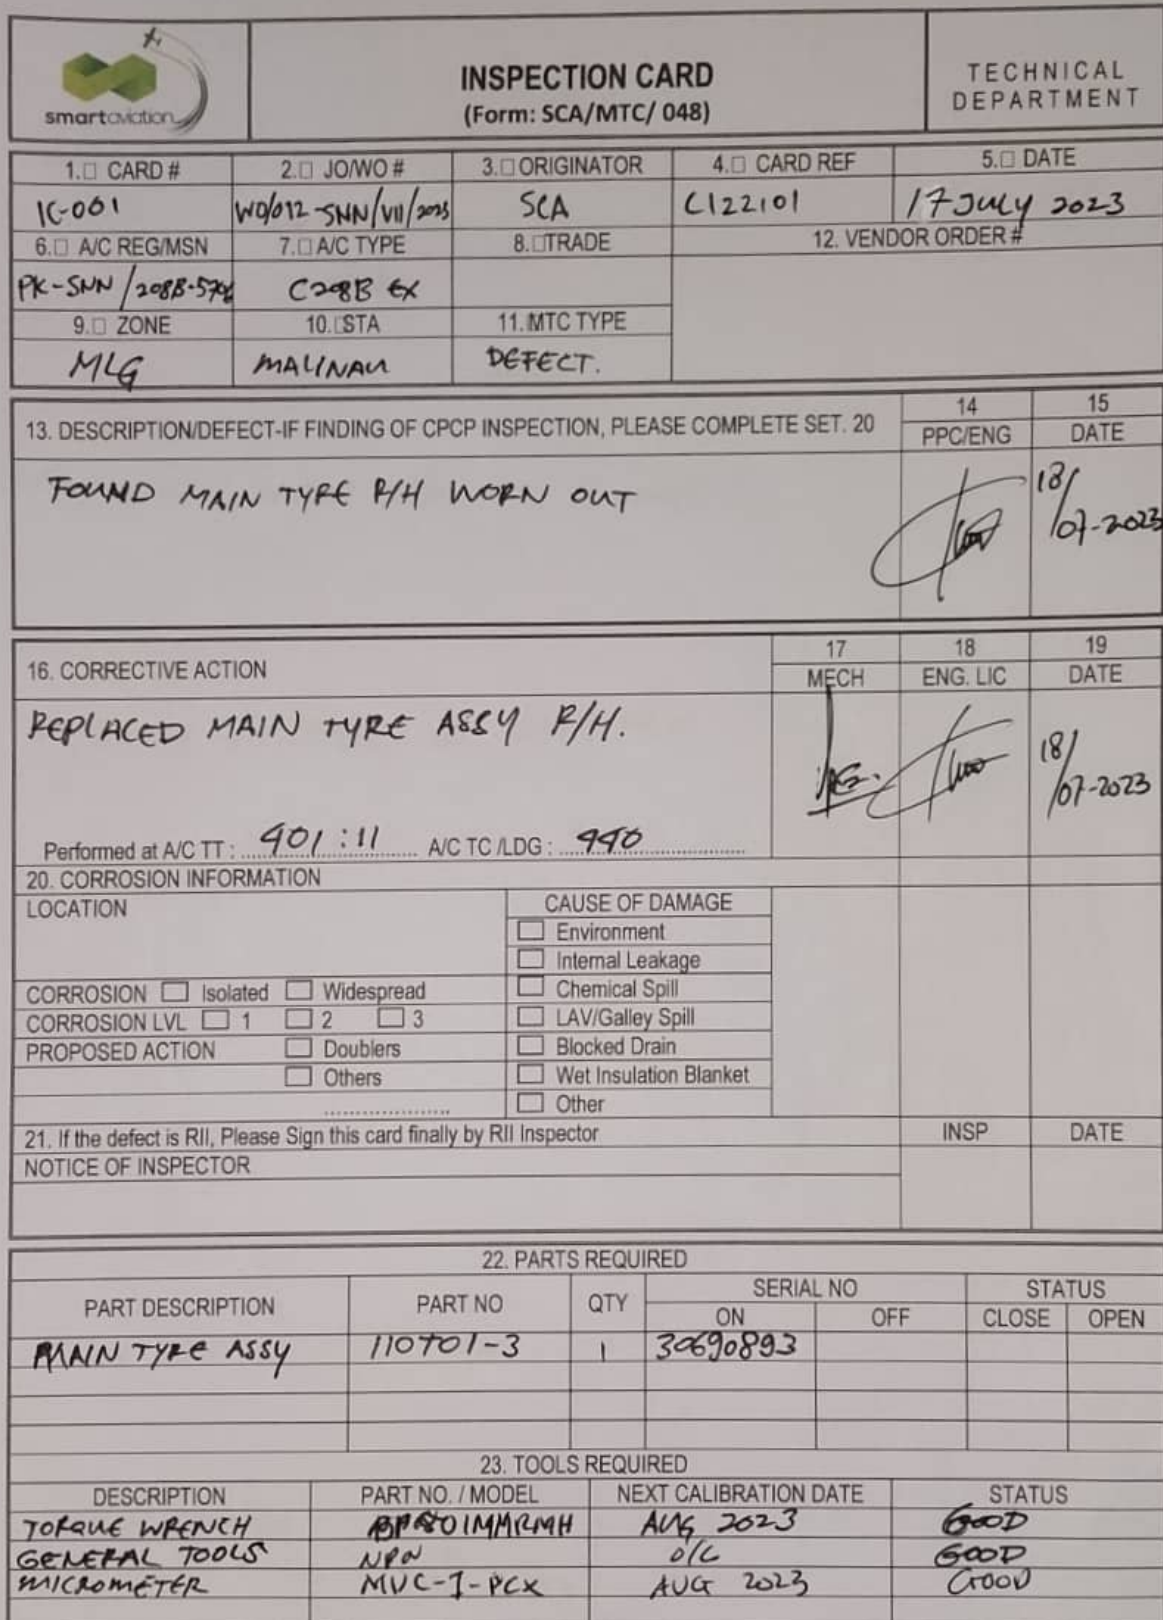 smartaviation
INSPECTION CARD
(Form: SCA/MTC/ 048)
TECHNICAL
DEPARTMENT
1.□ CARD # 2.□ JO/WO # 3.□ ORIGINATOR 4.□ CARD REF 5.□ DATE
IC-001 WO/012-SNN/VII/2023 SCA C122101 17 JULY 2023
6.□ A/C REG/MSN 7.□ A/C TYPE 8.□TRADE 12. VENDOR ORDER #
PK-SNN / C208B EX
9.□ ZONE 10.□STA 11.MTC TYPE
MLG MALINAU DEFECT.
13. DESCRIPTION/DEFECT-IF FINDING OF CPCP INSPECTION, PLEASE COMPLETE SET. 20 14 15
PPC/ENG DATE
FOUND MAIN TYRE R/H WORN OUT 18/07-2023
16. CORRECTIVE ACTION 17 18 19
MECH ENG. LIC DATE
REPLACED MAIN TYRE ASSY R/H. 18/07-2023
Performed at A/C TT : 901 : 11 A/C TC /LDG : 990
20. CORROSION INFORMATION
LOCATION CAUSE OF DAMAGE
□ Environment
□ Internal Leakage
CORROSION □ Isolated □ Widespread □ Chemical Spill
CORROSION LVL □ 1 □ 2 □ 3 □ LAV/Galley Spill
PROPOSED ACTION □ Doublers □ Blocked Drain
□ Others □ Wet Insulation Blanket
.................... □ Other
21. If the defect is RII, Please Sign this card finally by RII Inspector INSP DATE
NOTICE OF INSPECTOR
22. PARTS REQUIRED
PART DESCRIPTION PART NO QTY SERIAL NO STATUS
ON OFF CLOSE OPEN
MAIN TYRE ASSY 110T01-3 1 30690893
23. TOOLS REQUIRED
DESCRIPTION PART NO. / MODEL NEXT CALIBRATION DATE STATUS
TORQUE WRENCH AUG 2023 GOOD
GENERAL TOOLS NPN O/C GOOD
MICROMETER MVC-I-PCX AUG 2023 GOOD